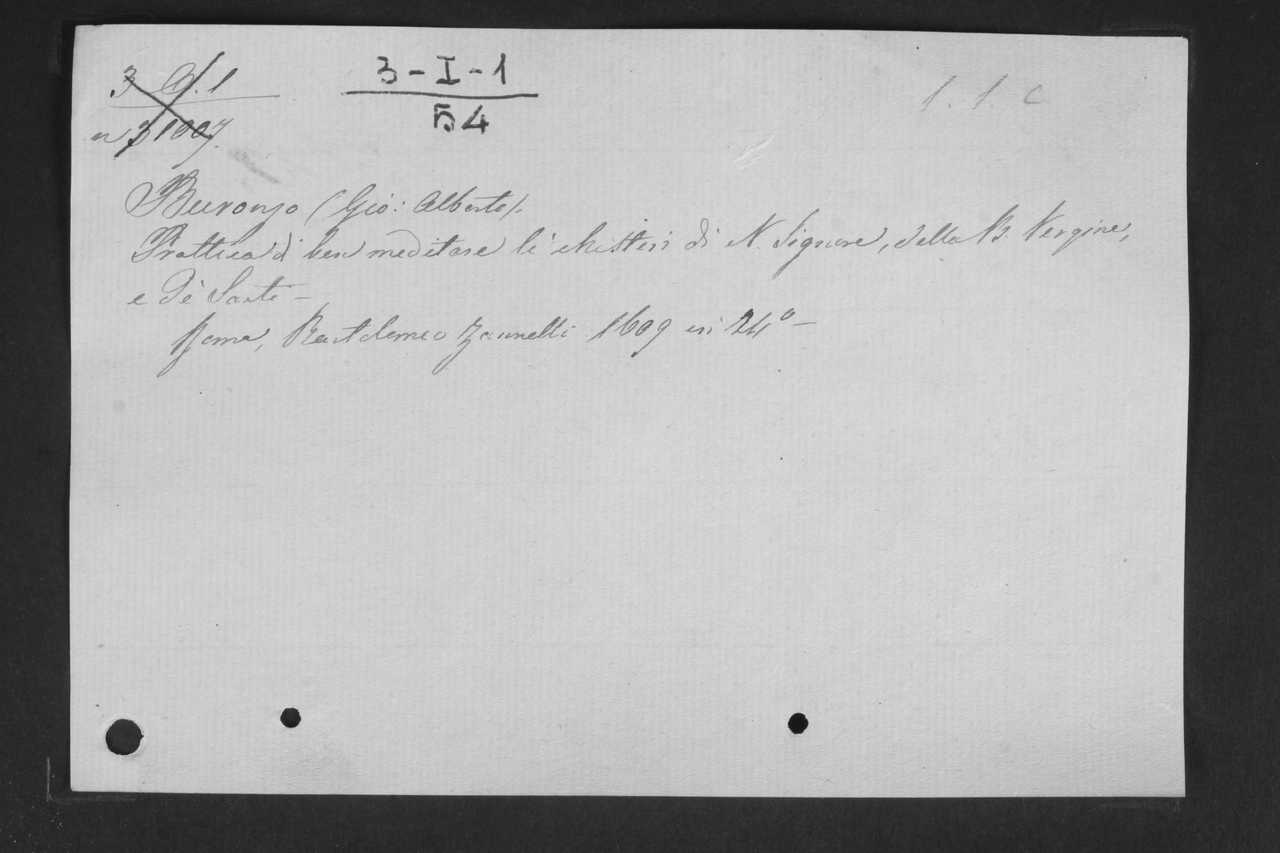 3 Q. 1
n 31007.
3-I-1
54
1. 1. C
Buronzo (Gio: Alberto).
Prattica di ben meditare li Misteri di N. Signore, della B. Vergine,
e de' Santi -
Roma, Bartolomeo Zannetti 1609 in 24° -